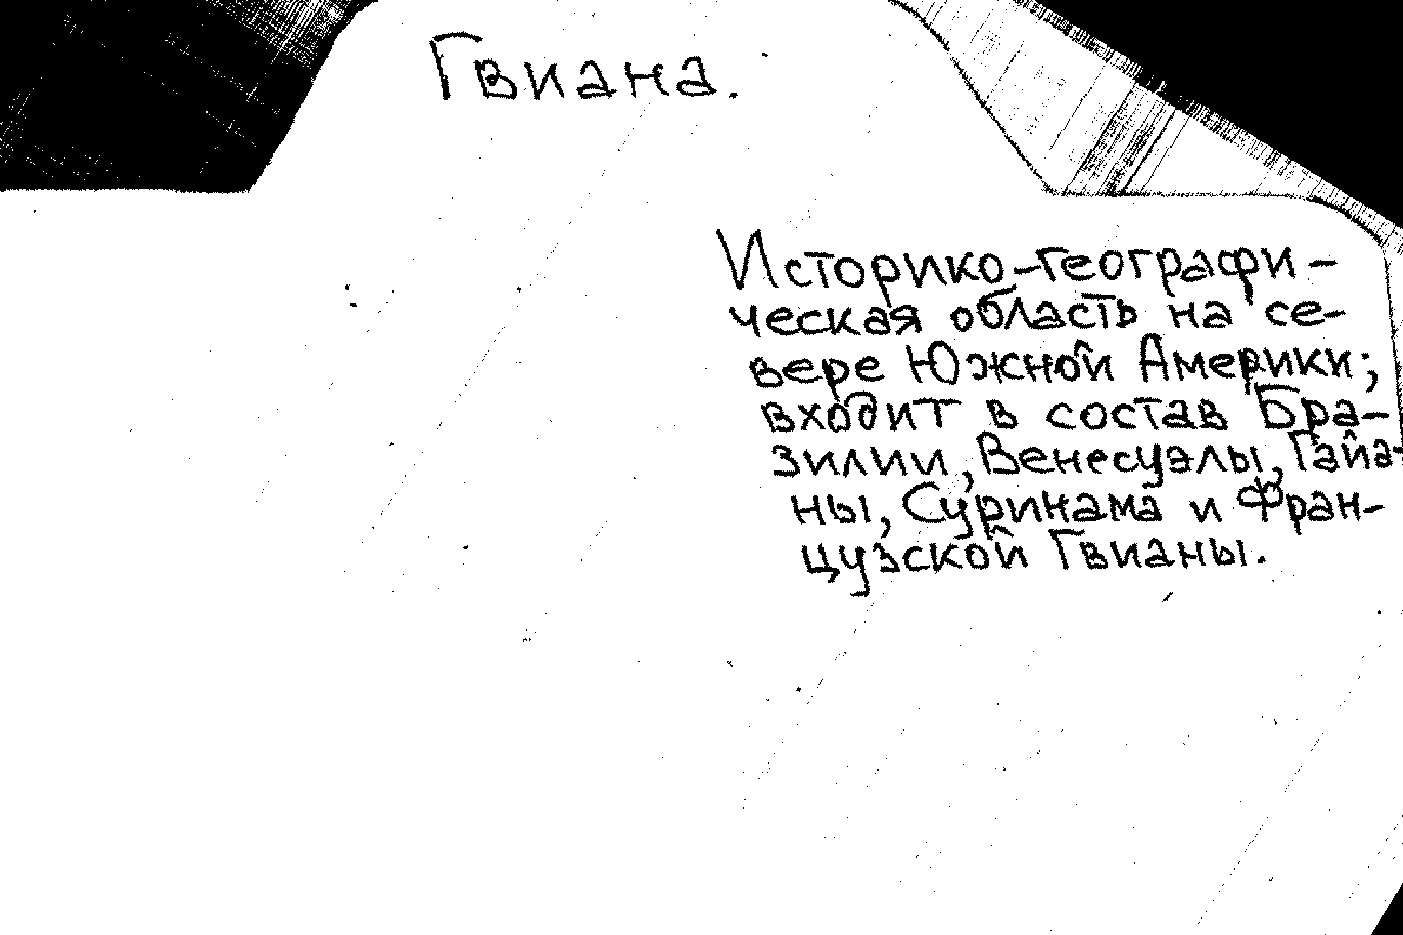 Гвиана.
Историко-географи-
ческая область на се-
вере Южной Америки;
входит в состав Бра-
зилии, Венесуэлы, Гайа-
ны, Суринама и Фран-
цузской Гвианы.